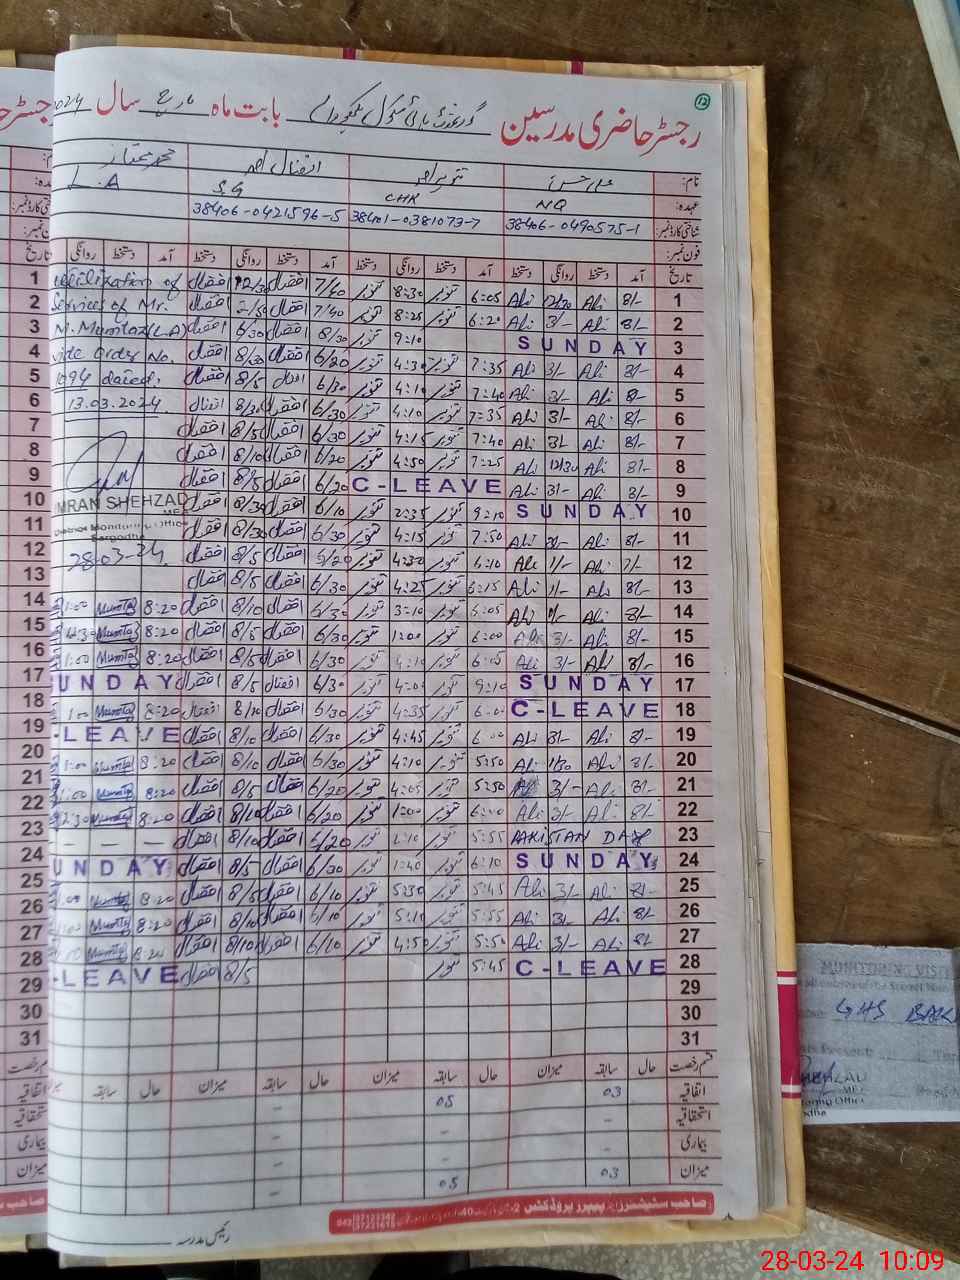 رجسٹر حاضری مدرسین گورنمنٹ ہائی سکول بابت ماہ مارچ سال 2024
12
نام: علی حسن تنویر احمد افضال احمد محمد ممتاز
عہدہ: NQ CHK S.G L.A
شناختی کارڈ نمبر: 38406-0490575-1 38401-0381073-7 38406-0421596-5
فون نمبر:
تاریخ آمد دستخط روانگی دستخط آمد دستخط روانگی دستخط آمد دستخط روانگی دستخط آمد دستخط روانگی تاریخ
1 8/- Ali 12/30 Ali 6:05 تنویر 8:30 تنویر 7/40 افضال 12/30 افضال utilization of 1
2 8/- Ali 3/- Ali 6:20 تنویر 8:25 تنویر 7/40 افضال 2/30 افضال Services of Mr. 2
3 SUNDAY 9:10 تنویر 8/30 افضال 6/30 افضال M. Mumtaz (L.A) 3
4 8/- Ali 3/- Ali 7:35 تنویر 4:30 تنویر 6/20 افضال 8/30 افضال vide order No. 4
5 8/- Ali 3/- Ali 7:40 تنویر 4:10 تنویر 6/30 افضال 8/5 افضال 1094 dated: 5
6 8/- Ali 3/- Ali 7:35 تنویر 4:10 تنویر 6/30 افضال 8/30 افضال 13.03.2024. 6
7 8/- Ali 3/- Ali 7:40 تنویر 4:15 تنویر 6/30 افضال 8/5 افضال 7
8 8/- Ali 12/30 Ali 7:25 تنویر 4:50 تنویر 6/20 افضال 8/10 افضال 8
9 8/- Ali 3/- Ali C-LEAVE 6/20 افضال 8/5 افضال 9
10 SUNDAY 9:10 تنویر 2:35 تنویر 6/10 افضال 8/30 افضال IMRAN SHEHZAD 10
MEA
11 8/- Ali 3/- Ali 7:50 تنویر 4:15 تنویر 6/30 افضال 8/30 افضال District Monitoring Office 11
Sargodha
12 7/- Ali 1/- Ali 6:10 تنویر 4:30 تنویر 5/20 افضال 8/5 افضال 28-03-24. 12
13 8/- Ali 1/- Ali 6:15 تنویر 4:25 تنویر 6/30 افضال 8/5 افضال 13
14 8/- Ali Ali 6:05 تنویر 3:10 تنویر 6/30 افضال 8/10 افضال 8:20 Mumtaz 1:00 14
15 8/- Ali 3/- Ali 6:00 تنویر 1:00 تنویر 6/30 افضال 8/5 افضال 8:20 Mumtaz 12:30 15
16 8/- Ali 3/- Ali 6:05 تنویر 4:10 تنویر 6/30 افضال 8/5 افضال 8:20 Mumtaz 1:00 16
17 SUNDAY 9:10 تنویر 4:00 تنویر 6/30 افضال 8/5 افضال UNDAY 17
18 C-LEAVE 6:00 تنویر 4:35 تنویر 6/30 افضال 8/10 افضال 8:20 Mumtaz 1:00 18
19 8/- Ali 3/- Ali 6:00 تنویر 4:45 تنویر 6/30 افضال 8/10 افضال -LEAVE 19
20 8/- Ali 1/30 Ali 5:50 تنویر 4:10 تنویر 6/30 افضال 8/10 افضال 8:20 Mumtaz 1:00 20
21 8/- Ali 3/- Ali 5:50 تنویر 4:05 تنویر 6/20 افضال 8/5 افضال 8:20 Mumtaz 1:00 21
22 8/- Ali 3/- Ali 6:00 تنویر 1:00 تنویر 6/20 افضال 8/10 افضال 8:20 Mumtaz 12:30 22
23 PAKISTAN DAY 5:55 تنویر 2:10 تنویر 6/20 افضال 8/10 افضال — — — 23
24 SUNDAY 6:10 تنویر 1:40 تنویر 6/30 افضال 8/5 افضال UNDAY 24
25 8/- Ali 3/- Ali 5:45 تنویر 5:30 تنویر 6/10 افضال 8/5 افضال 8:20 Mumtaz 1:00 25
26 8/- Ali 3/- Ali 5:55 تنویر 5:10 تنویر 6/10 افضال 8/10 افضال 8:20 Mumtaz 1:00 26
27 8/- Ali 3/- Ali 5:50 تنویر 4:50 تنویر 6/10 افضال 8/10 افضال 8:20 Mumtaz 27
28 C-LEAVE 5:45 تنویر 8/5 افضال -LEAVE 28
29 29
30 30
31 31
قسم رخصت حال سابقہ میزان حال سابقہ میزان حال سابقہ میزان حال سابقہ
اتفاقیہ 03 05 -
استحقاقیہ -
بیماری -
میزان 03 05 -
صاحب سٹیشنرز اینڈ پیپر پروڈکٹس
رئیس مدرسہ
MONITORING VISIT
GHS
MEA
28-03-24 10:09